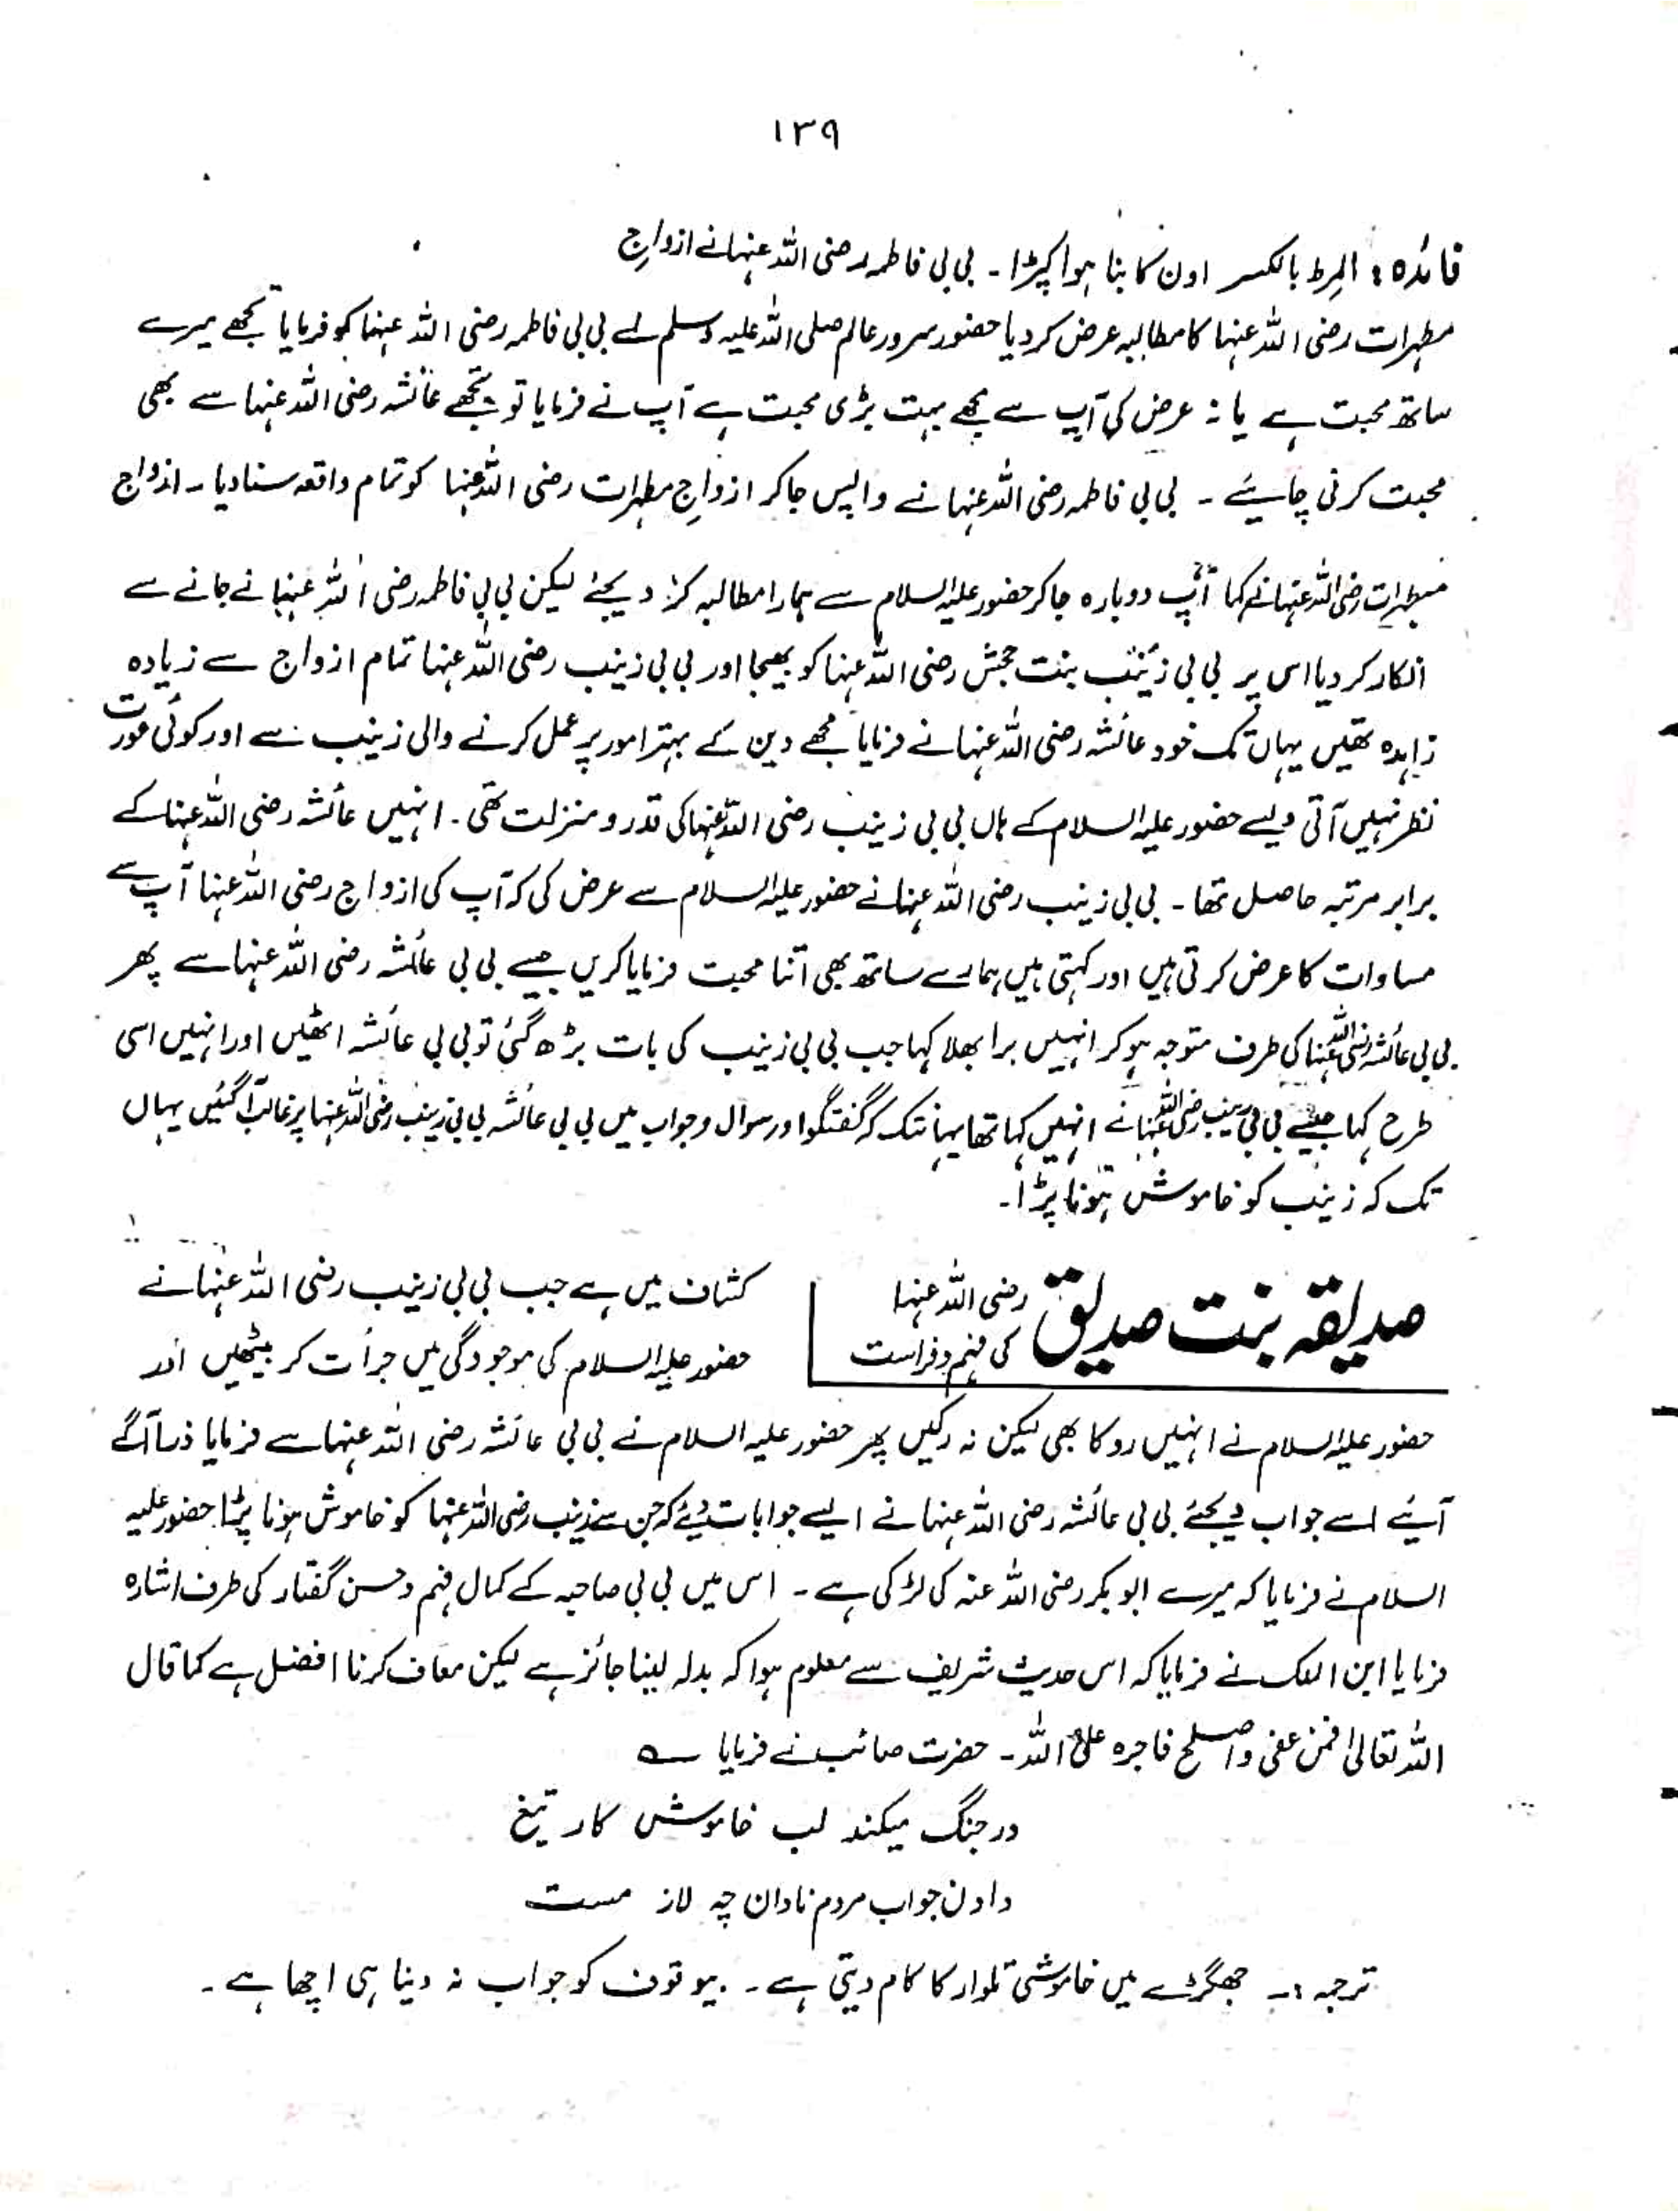 ۱۳۹
فائدہ : المِرط بالکسر اون کا بنا ہوا کپڑا ۔ بی بی فاطمہ رضی اللہ عنہا نے ازواجِ
مطہرات رضی اللہ عنہا کا مطالبہ عرض کر دیا حضور سرور عالم صلی اللہ علیہ وسلم نے بی بی فاطمہ رضی اللہ عنہا کو فرمایا تجھے میرے
ساتھ محبت ہے یا نہ عرض کی آپ سے مجھے بہت بڑی محبت ہے آپ نے فرمایا تو تجھے عائشہ رضی اللہ عنہا سے بھی
محبت کرنی چاہیئے ۔ بی بی فاطمہ رضی اللہ عنہا نے واپس جا کر ازواجِ مطہرات رضی اللہ عنہا کو تمام واقعہ سنا دیا ۔ ازواج
مطہرات رضی اللہ عنہا نے کہا آپ دوبارہ جا کر حضور علیہ السلام سے ہمارا مطالبہ کر دیجئے لیکن بی بی فاطمہ رضی اللہ عنہا نے جانے سے
انکار کر دیا اس پر بی بی زینب بنت جحش رضی اللہ عنہا کو بھیجا اور بی بی زینب رضی اللہ عنہا تمام ازواج سے زیادہ
زاہدہ تھیں یہاں تک خود عائشہ رضی اللہ عنہا نے فرمایا مجھے دین کے بہتر امور پر عمل کرنے والی زینب سے اور کوئی عورت
نظر نہیں آتی ویسے حضور علیہ السلام کے ہاں بی بی زینب رضی اللہ عنہا کی قدر و منزلت تھی ۔ انہیں عائشہ رضی اللہ عنہا کے
برابر مرتبہ حاصل تھا ۔ بی بی زینب رضی اللہ عنہا نے حضور علیہ السلام سے عرض کی کہ آپ کی ازواج رضی اللہ عنہا آپ سے
مساوات کا عرض کرتی ہیں اور کہتی ہیں ہمارے ساتھ بھی اتنا محبت فرمایا کریں جیسے بی بی عائشہ رضی اللہ عنہا سے پھر
بی بی عائشہ رضی اللہ عنہا کی طرف متوجہ ہو کر انہیں برا بھلا کہا جب بی بی زینب کی بات بڑھ گئی تو بی بی عائشہ اٹھیں اور انہیں اسی
طرح کہا جیسے بی بی زینب رضی اللہ عنہا نے انہیں کہا تھا یہانتک کہ گفتگو اور سوال و جواب میں بی بی عائشہ بی بی زینب رضی اللہ عنہا پر غالب آگئیں یہاں
تک کہ زینب کو خاموش ہونا پڑا ۔
صدیقہ بنت صدیق رضی اللہ عنہا کی فہم و فراست
کشاف میں ہے جب بی بی زینب رضی اللہ عنہا نے
حضور علیہ السلام کی موجودگی میں جرأت کر بیٹھیں اور
حضور علیہ السلام نے انہیں روکا بھی لیکن نہ رکیں پھر حضور علیہ السلام نے بی بی عائشہ رضی اللہ عنہا سے فرمایا ذرا آگے
آیئے اسے جواب دیجئے بی بی عائشہ رضی اللہ عنہا نے ایسے جوابات دیئے کہ جن سے زینب رضی اللہ عنہا کو خاموش ہونا پڑا حضور علیہ
السلام نے فرمایا کہ میرے ابوبکر رضی اللہ عنہ کی لڑکی ہے ۔ اس میں بی بی صاحبہ کے کمال فہم و حسن گفتار کی طرف اشارہ
فرمایا ابن الملک نے فرمایا کہ اس حدیث شریف سے معلوم ہوا کہ بدلہ لینا جائز ہے لیکن معاف کرنا افضل ہے کما قال
اللہ تعالیٰ فمن عفی واصلح فاجرہ علی اللہ ۔ حضرت صائب نے فرمایا ؎
در جنگ میکند لب خاموش کار تیغ
دادن جواب مردم نادان چہ لاز مست
ترجمہ :۔ جھگڑے میں خاموشی تلوار کا کام دیتی ہے ۔ بیوقوف کو جواب نہ دینا ہی اچھا ہے ۔